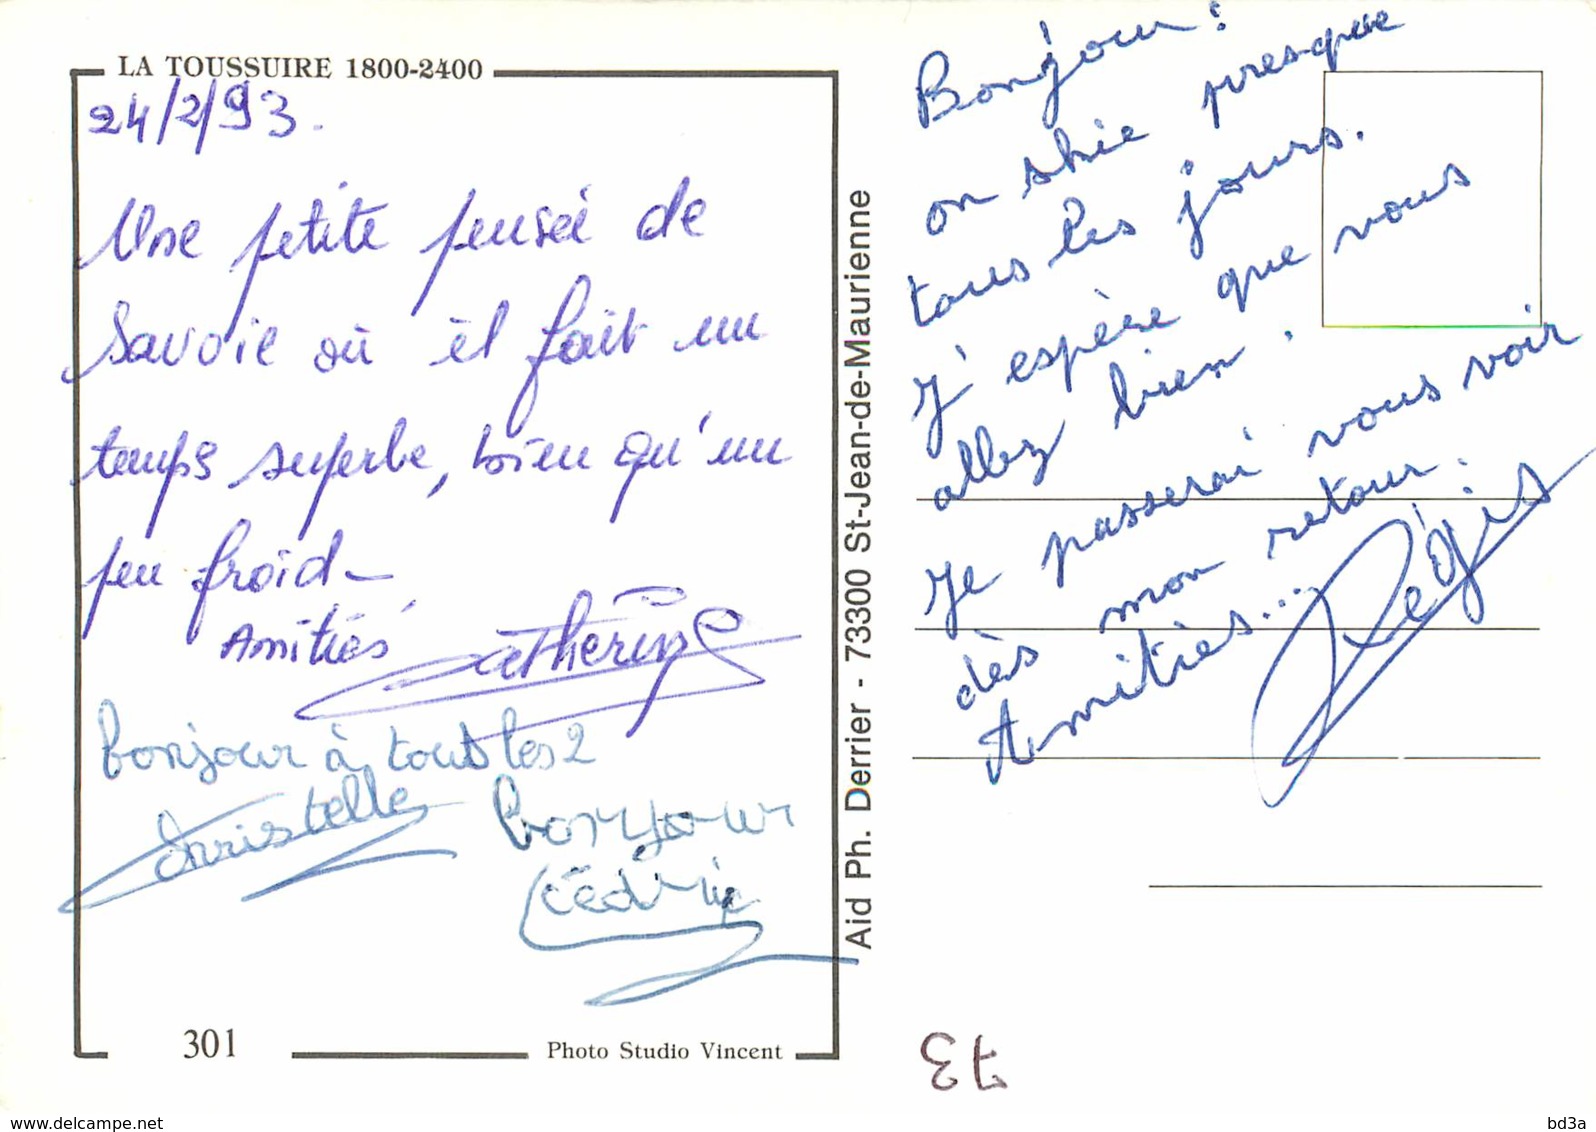 LA TOUSSUIRE 1800-2400
24/2/93.
Une petite pensée de
Savoie où il fait un
temps superbe, bien qu'un
peu froid-
Amitiés Catherine
bonjour à tous les 2
Christelle
bonjour
Cédric
301
Photo Studio Vincent
Aid Ph. Derrier - 73300 St-Jean-de-Maurienne
Bonjour:
on skie presque
tous les jours.
J'espère que vous
allez bien.
Je passerai vous voir
dès mon retour.
Amitiès... Régis
73
www.delcampe.net
bd3a